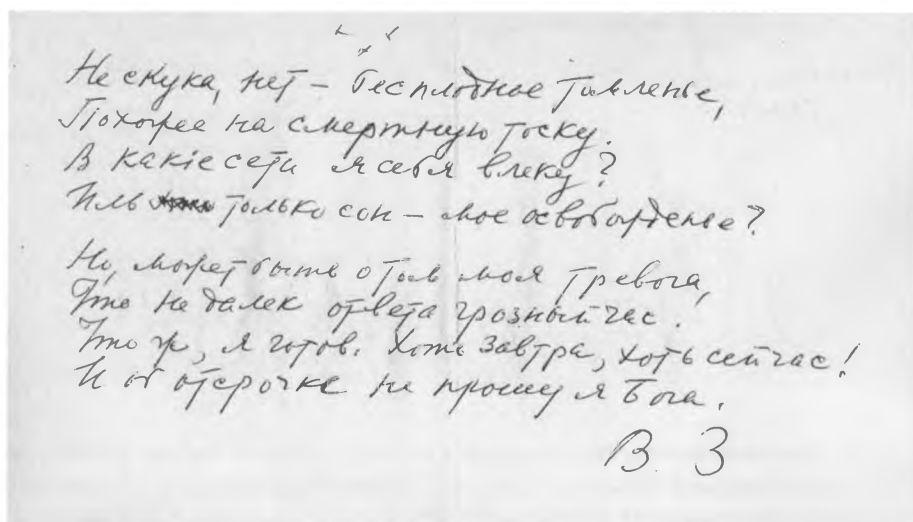 Не скука, нет – бесплодное томленье,
Похожее на смертную тоску.
В какіе сети я себя влеку?
Иль только сон – мое освобожденье?
Но, может быть о том моя тревога,
Что не далек ответа грозный час.
Что ж, я готов. Хоть завтра, хоть сейчас!
И об отсрочке не прошу я Бога.
В. З